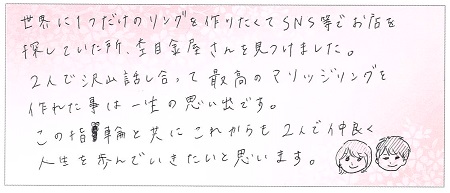 世界に1つだけのリングを作りたくてSNS等でお店を
探していた所、杢目金屋さんを見つけました。
2人で沢山話し合って最高のマリッジリングを
作れた事は一生の思い出です。
この指輪と共にこれからも2人で仲良く
人生を歩んでいきたいと思います。